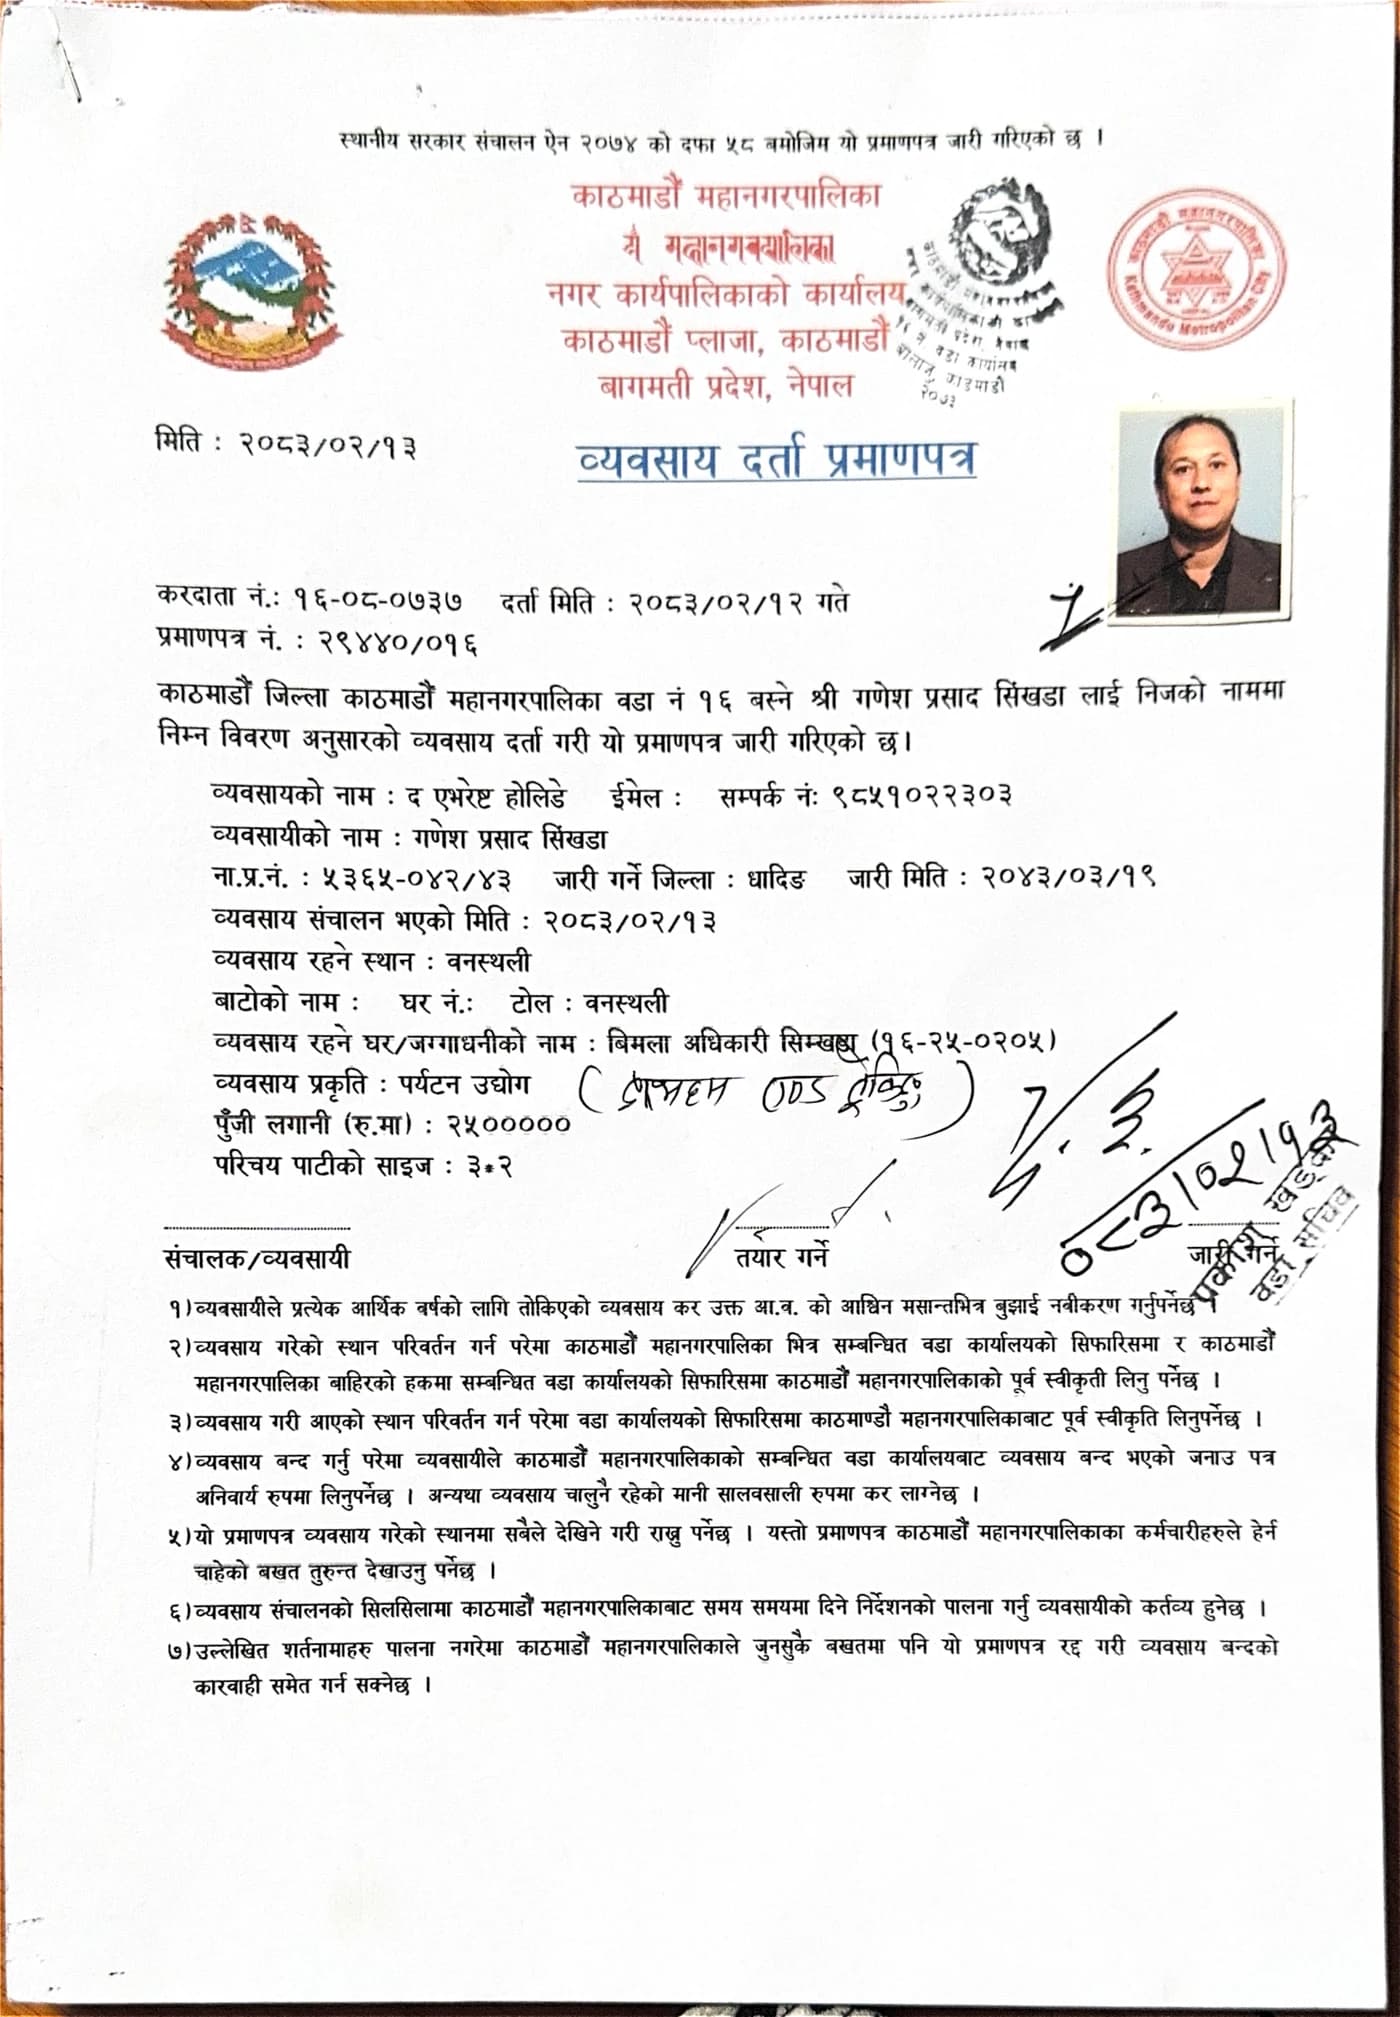 स्थानीय सरकार संचालन ऐन २०७४ को दफा ५८ बमोजिम यो प्रमाणपत्र जारी गरिएको छ ।
काठमाडौं महानगरपालिका
नगर कार्यपालिकाको कार्यालय
काठमाडौं प्लाजा, काठमाडौं
बागमती प्रदेश, नेपाल
काठमाडौं महानगरपालिका
Kathmandu Metropolitan City
काठमाडौं महानगरपालिका
नगर कार्यपालिकाको कार्यालय
बागमती प्रदेश, नेपाल
१६ नं वडा कार्यालय
बालाजु, काठमाडौं
२०७३
मिति : २०८३/०२/१३
व्यवसाय दर्ता प्रमाणपत्र
करदाता नं.: १६-०८-०७३७ दर्ता मिति : २०८३/०२/१२ गते
प्रमाणपत्र नं. : २९४४०/०१६
काठमाडौं जिल्ला काठमाडौं महानगरपालिका वडा नं १६ बस्ने श्री गणेश प्रसाद सिंखडा लाई निजको नाममा
निम्न विवरण अनुसारको व्यवसाय दर्ता गरी यो प्रमाणपत्र जारी गरिएको छ।
व्यवसायको नाम : द एभरेष्ट होलिडे ईमेल : सम्पर्क नंः ९८५१०२२३०३
व्यवसायीको नाम : गणेश प्रसाद सिंखडा
ना.प्र.नं. : ५३६५-०४२/४३ जारी गर्ने जिल्ला : धादिङ जारी मिति : २०४३/०३/१९
व्यवसाय संचालन भएको मिति : २०८३/०२/१३
व्यवसाय रहने स्थान : वनस्थली
बाटोको नाम : घर नं.: टोल : वनस्थली
व्यवसाय रहने घर/जग्गाधनीको नाम : बिमला अधिकारी सिम्खडा (१६-२५-०२०५)
व्यवसाय प्रकृति : पर्यटन उद्योग
पुँजी लगानी (रु.मा) : २५०००००
परिचय पाटीको साइज : ३*२
०८३/०२/१३
संचालक/व्यवसायी तयार गर्ने जारी गर्ने
प्रकाश खड्का
वडा सचिव
१) व्यवसायीले प्रत्येक आर्थिक वर्षको लागि तोकिएको व्यवसाय कर उक्त आ.व. को आश्विन मसान्तभित्र बुझाई नवीकरण गर्नुपर्नेछ ।
२) व्यवसाय गरेको स्थान परिवर्तन गर्न परेमा काठमाडौं महानगरपालिका भित्र सम्बन्धित वडा कार्यालयको सिफारिसमा र काठमाडौं
महानगरपालिका बाहिरको हकमा सम्बन्धित वडा कार्यालयको सिफारिसमा काठमाडौं महानगरपालिकाको पूर्व स्वीकृती लिनु पर्नेछ ।
३) व्यवसाय गरी आएको स्थान परिवर्तन गर्न परेमा वडा कार्यालयको सिफारिसमा काठमाण्डौ महानगरपालिकाबाट पूर्व स्वीकृति लिनुपर्नेछ ।
४) व्यवसाय बन्द गर्नु परेमा व्यवसायीले काठमाडौं महानगरपालिकाको सम्बन्धित वडा कार्यालयबाट व्यवसाय बन्द भएको जनाउ पत्र
अनिवार्य रुपमा लिनुपर्नेछ । अन्यथा व्यवसाय चालुनै रहेको मानी सालवसाली रुपमा कर लाग्नेछ ।
५) यो प्रमाणपत्र व्यवसाय गरेको स्थानमा सबैले देखिने गरी राख्नु पर्नेछ । यस्तो प्रमाणपत्र काठमाडौं महानगरपालिकाका कर्मचारीहरुले हेर्न
चाहेको बखत तुरुन्त देखाउनु पर्नेछ ।
६) व्यवसाय संचालनको सिलसिलामा काठमाडौं महानगरपालिकाबाट समय समयमा दिने निर्देशनको पालना गर्नु व्यवसायीको कर्तव्य हुनेछ ।
७) उल्लेखित शर्तनामाहरु पालना नगरेमा काठमाडौं महानगरपालिकाले जुनसुकै बखतमा पनि यो प्रमाणपत्र रद्द गरी व्यवसाय बन्दको
कारवाही समेत गर्न सक्नेछ ।